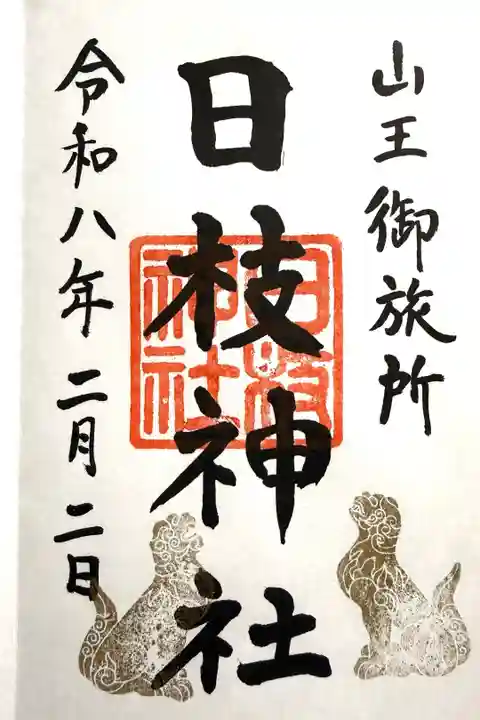 山王御旅所
日枝神社
日枝神社
令和八年二月二日